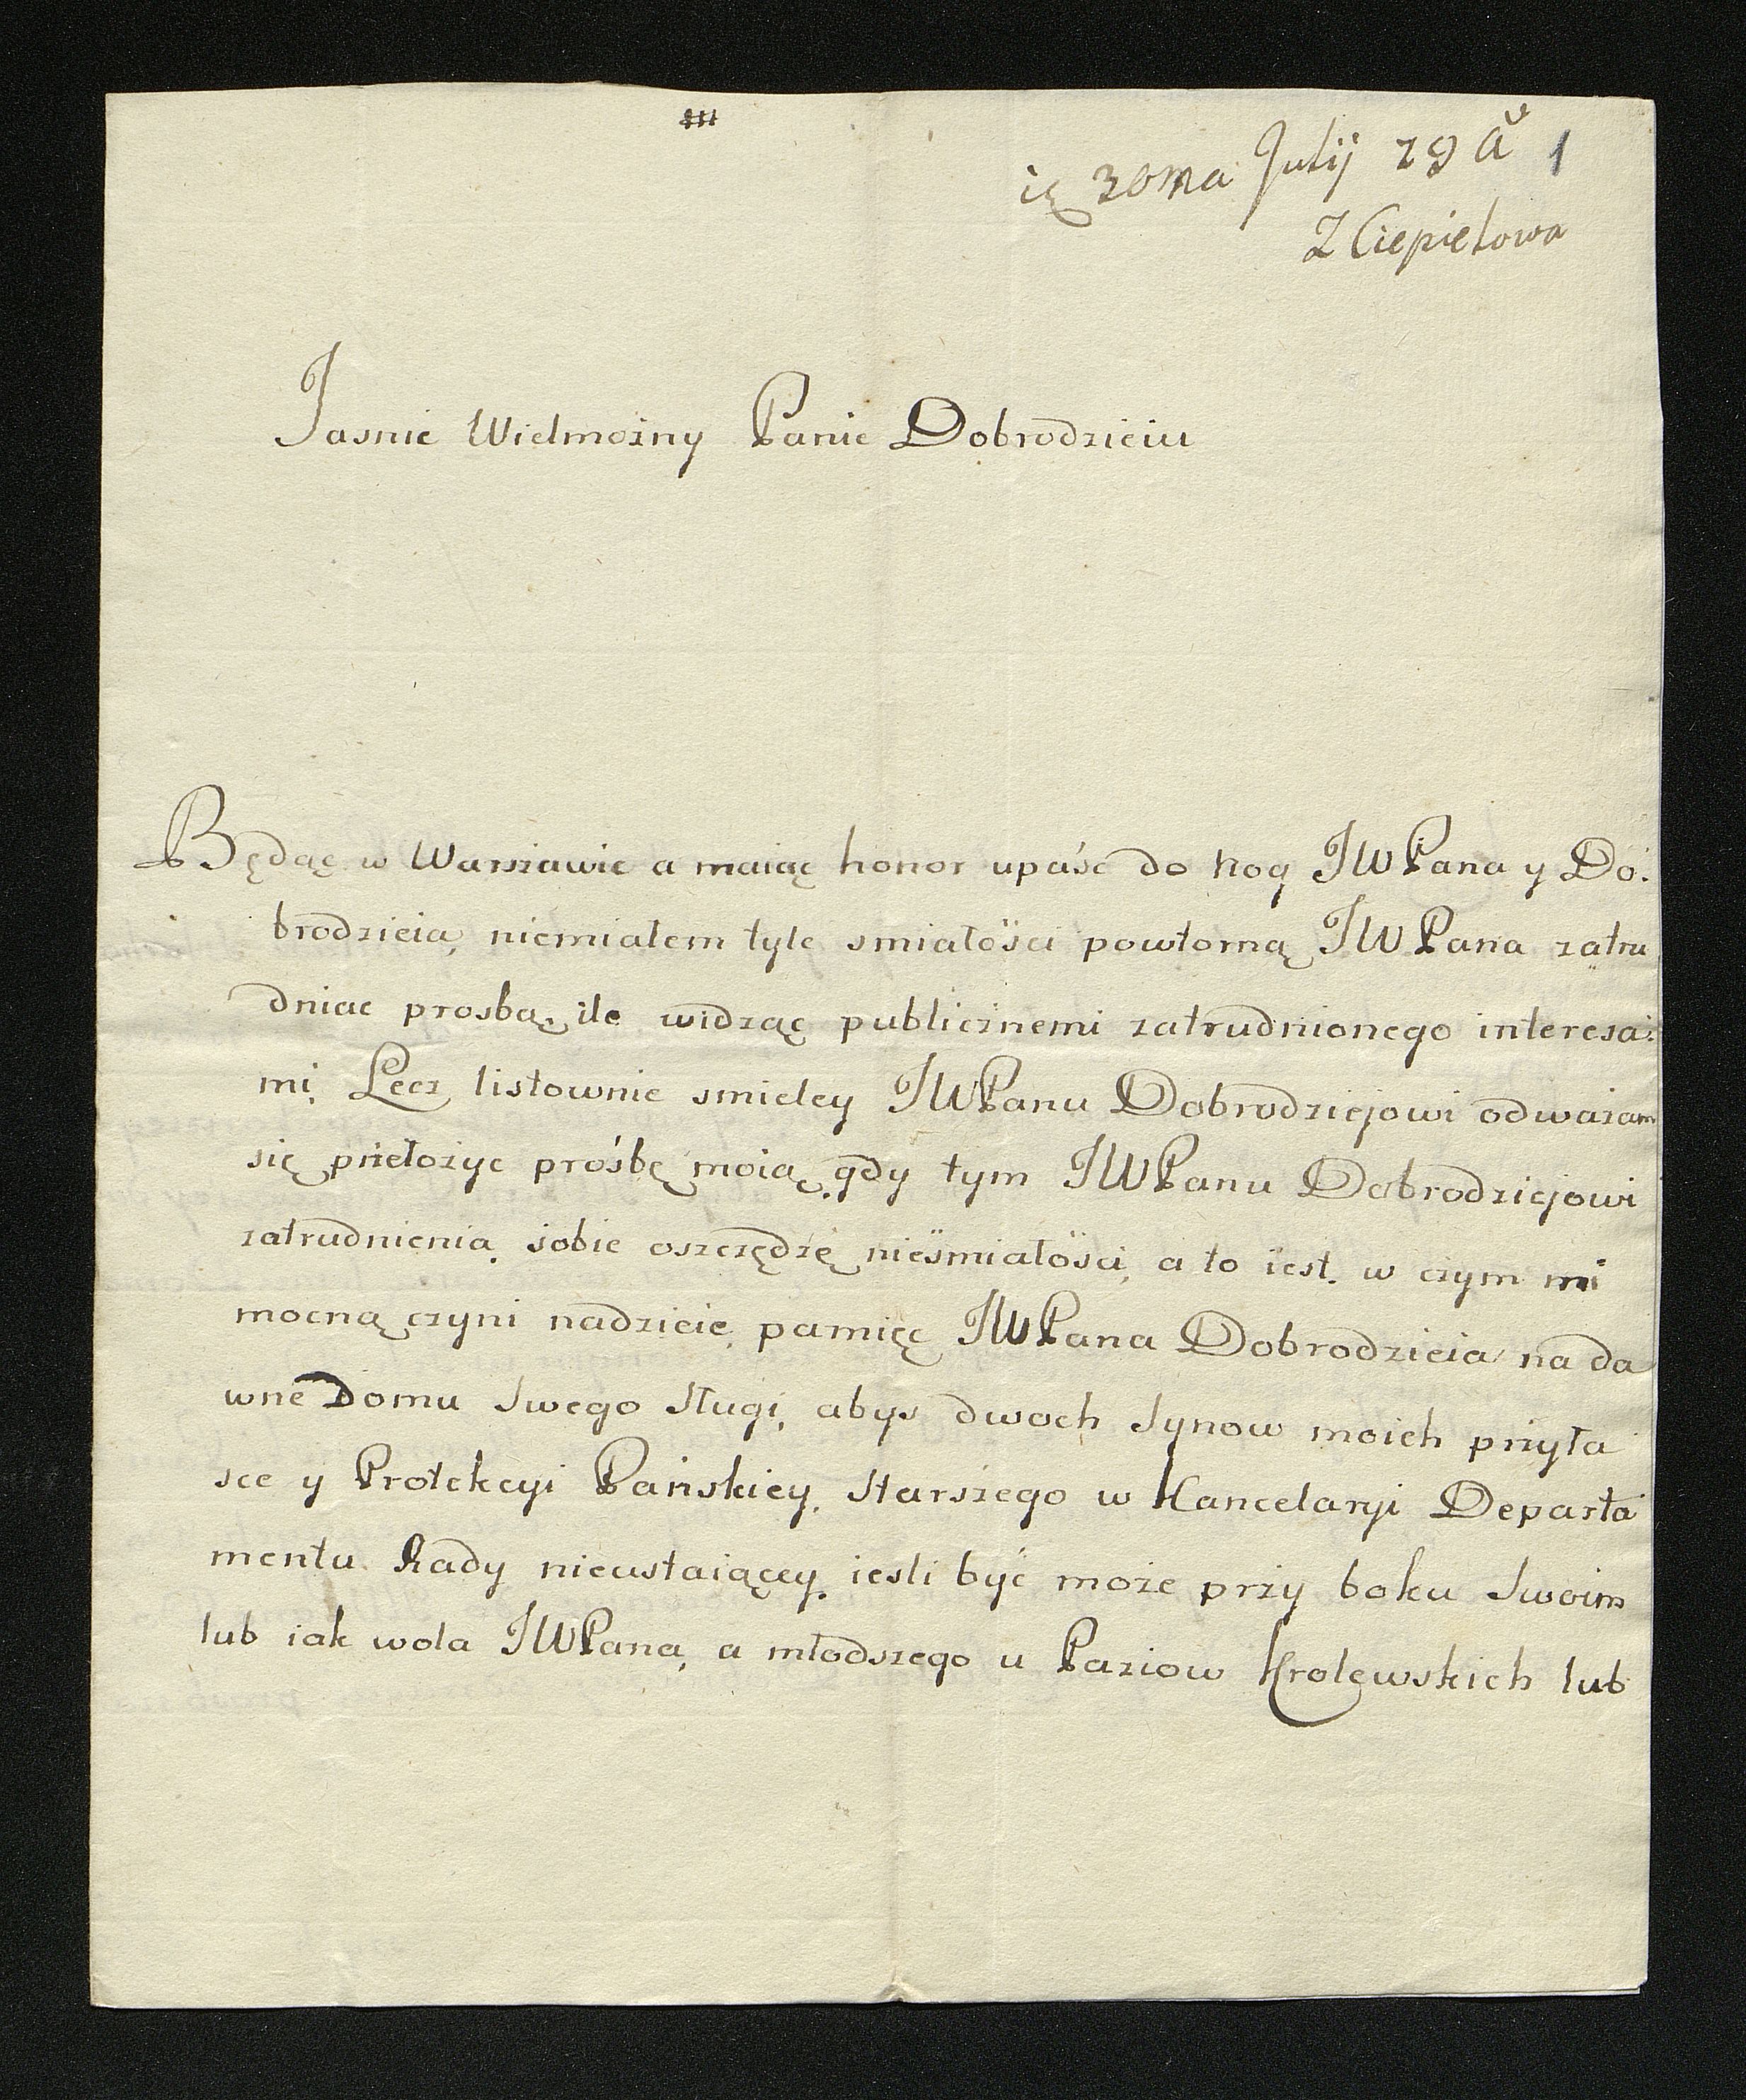 Julij 79 1
Z Ciepielowa
Jasnie Wielmożny Panie Dobrodzieiu
Będąc w Warszawie a maiąc honor upaśc do nog JWPana y Do:
brodzieia, niemiałem tyle smiałości powtorną JWPana zatru
dniac prosbą, ile widząc publicznemi zatrudnionego interesa:
mi. Lecz listownie smieley JWPanu Dobrodziejowi odwazam
się przełożyc prośbę moią, gdy tym JWPanu Dobrodziejowi
zatrudnienia, sobie oszczędzę nieśmiałości, a to iest. w czym mi
mocną czyni nadzieie, pamięc JWPana Dobrodzieia na da
wne Domu Swego Sługi, abys dwoch Synow moich przyła
sce y Protekcyi Pańskiey, Starszego w Kancelaryi Departa
mentu Rady nieustaiącey. iesli być może przy boku Swoim
lub iak wola JWPana, a młodszego u Paziow Krolewskich lub